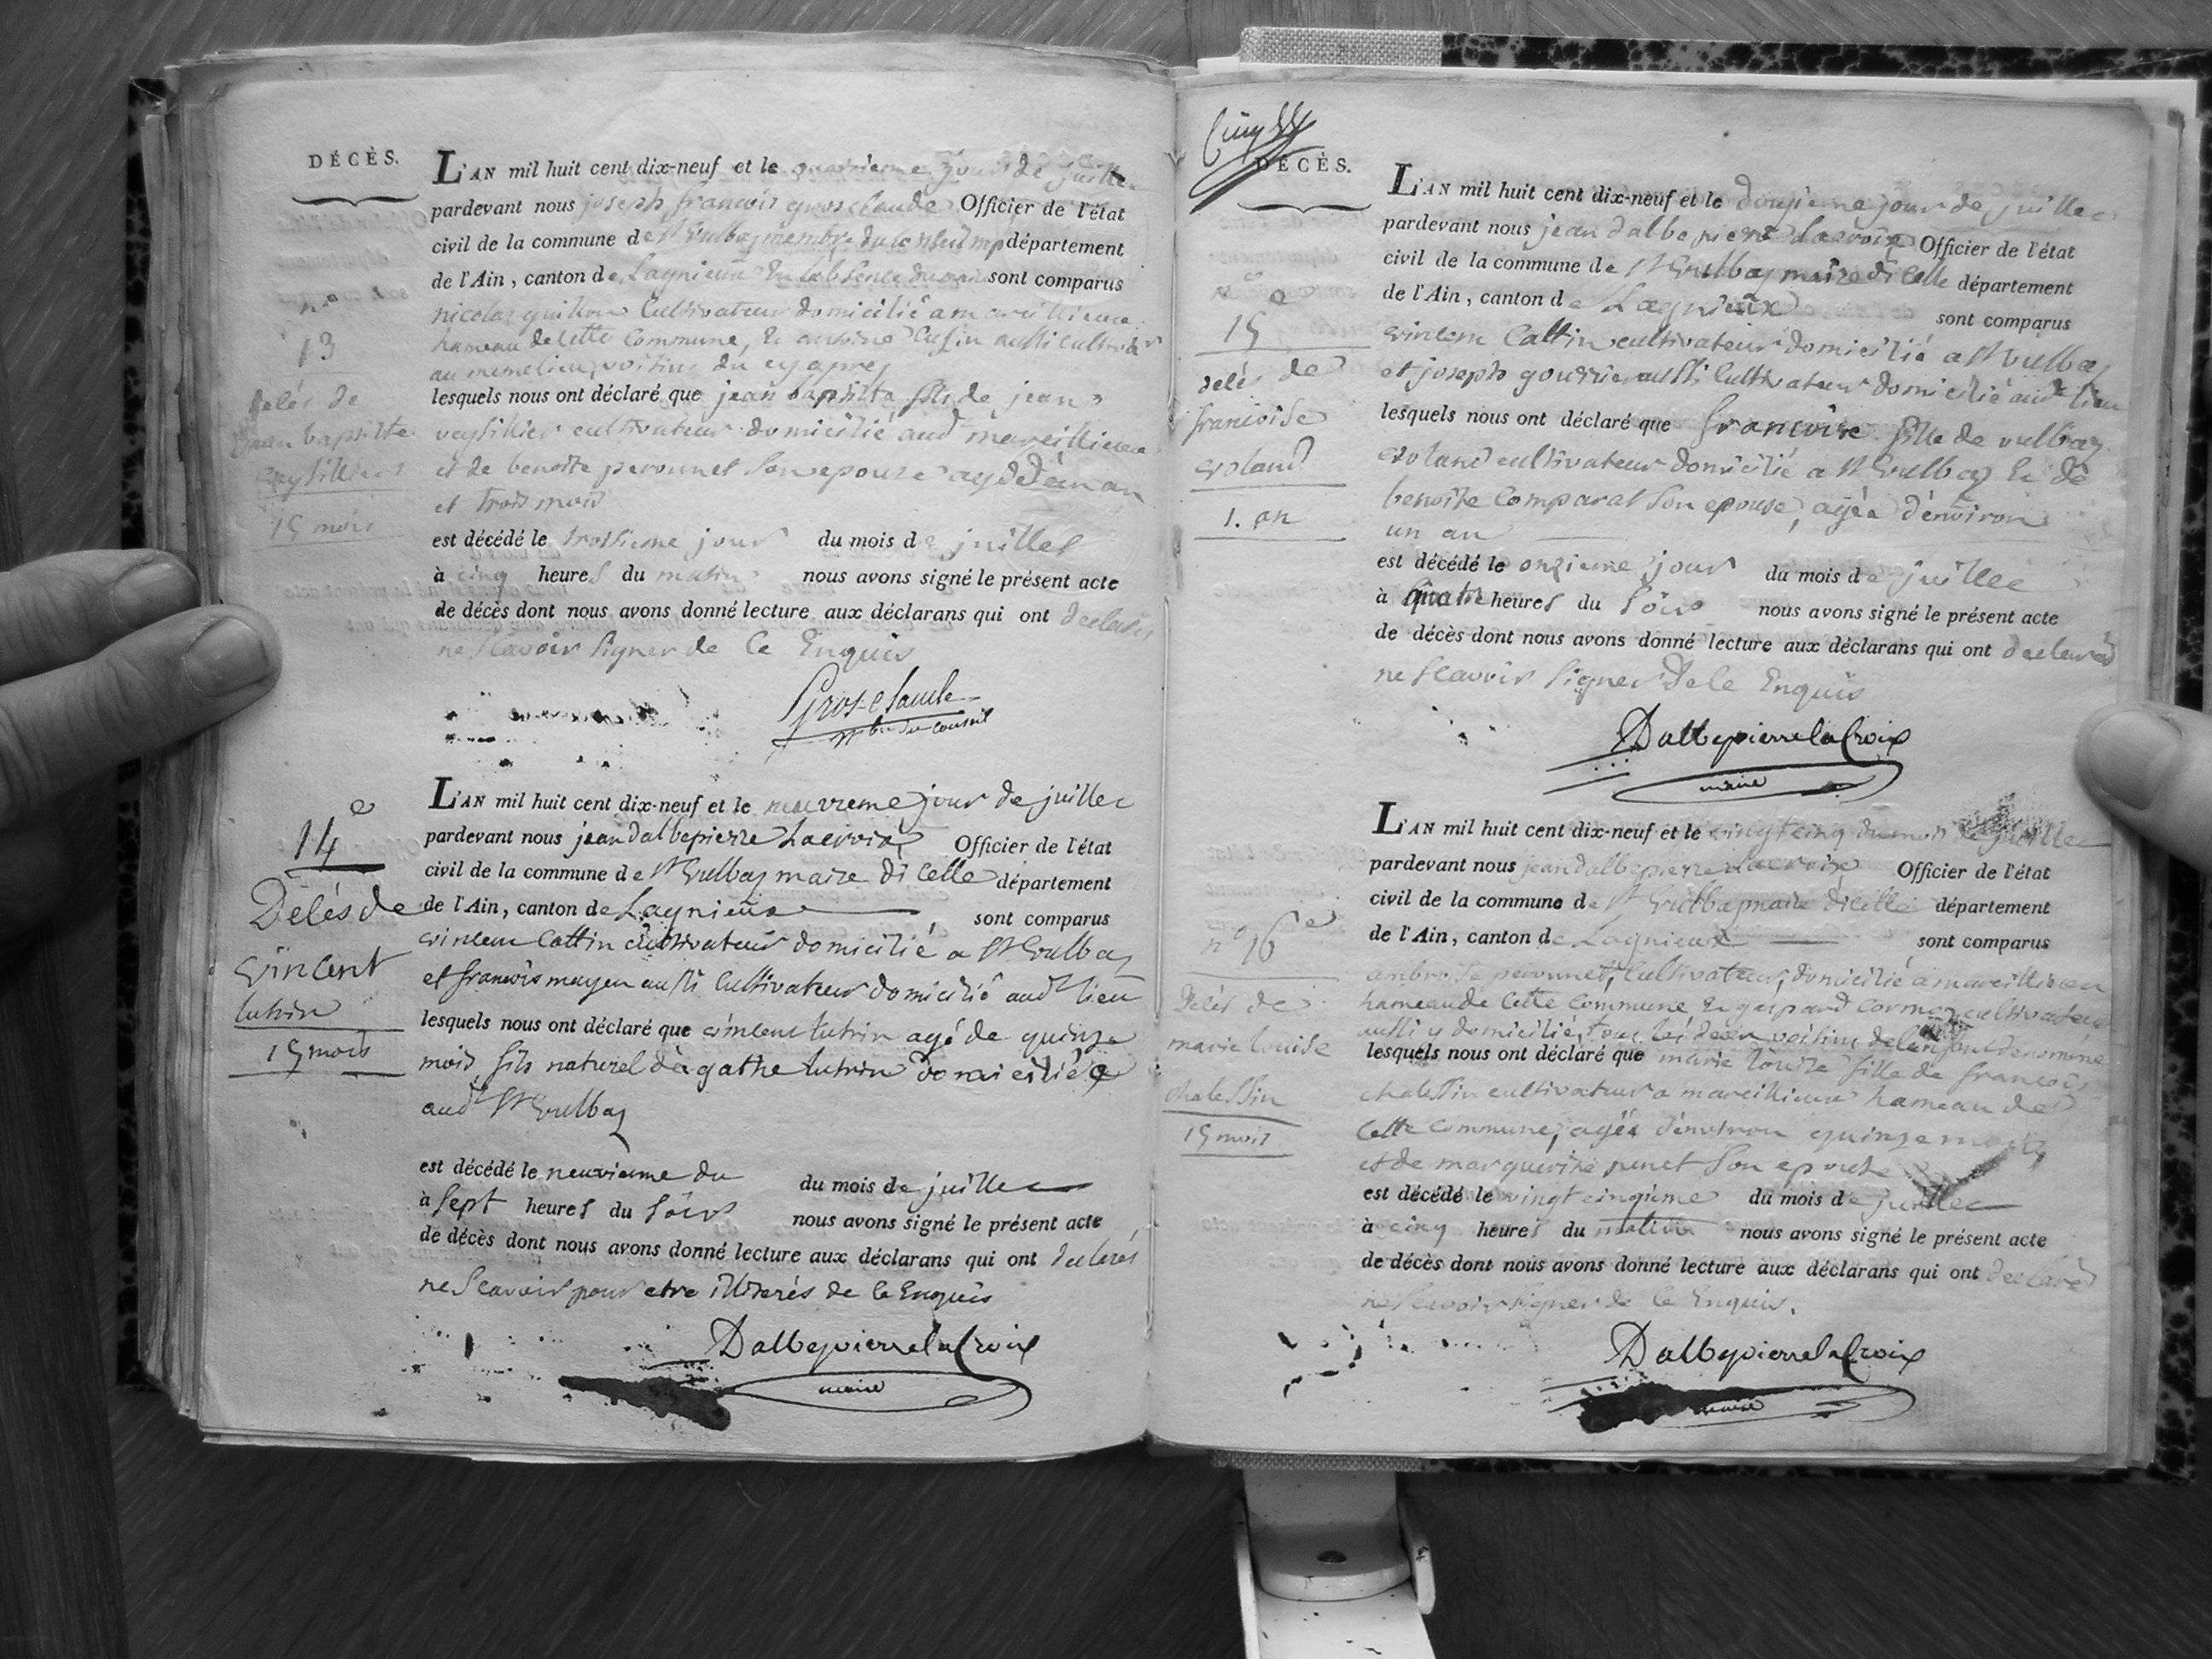 DÉCÈS.
L'AN mil huit cent dix-neuf et le quatrieme jour de juillet
pardevant nous joseph francois grosclaude Officier de l'état
civil de la commune de St Vulbas membre du conseil mp département
de l'Ain, canton de Lagnieux En labsence du maire sont comparus
nicolas guillon Cultivateur domicilié a marcillieux
hameau de Cette Commune, Et antoine Cusin aussi cultivr
au meme lieu, voisins du cy apres
lesquels nous ont déclaré que jean baptiste fils de jean
veysillier cultivateur domicilié aud marcillieux
et de benoite peronnet Son epouse agé d'un an
et trois mois
est décédé le troisieme jour du mois de juillet
à cinq heures du matin nous avons signé le présent acte
de décès dont nous avons donné lecture aux déclarans qui ont declarés
ne Scavoir Signer de Ce Enquis
Grosclaude
mbre du conseil
ne
13
Delés de
jean baptiste
veysillier
15 mois
L'AN mil huit cent dix-neuf et le neuvieme jour de juillet
pardevant nous jean dalbepierre Lacroix Officier de l'état
civil de la commune de St Vulbas maire di Celle département
de l'Ain, canton de Lagnieux sont comparus
vincent Cattin cultivateur domicilié a St Vulbas
et francois moyen aussi Cultivateur domicilié audt lieu
lesquels nous ont déclaré que vincent lutrin agé de quinze
mois fils naturel d'agathe lutrin domiciliée
audt St Vulbas
est décédé le neuvieme du du mois de juillet
à Sept heures du Soir nous avons signé le présent acte
de décès dont nous avons donné lecture aux déclarans qui ont declarés
ne Scavoir pour etre illiterés de ce Enquis
Dalbepierre la Croix
maire
14e
Délés de
vincent
lutrin
15 mois
DÉCÈS.
L'AN mil huit cent dix-neuf et le douzieme jour de juillet
pardevant nous jean dalbepierre Lacroix Officier de l'état
civil de la commune de St Vulbas maire di Celle département
de l'Ain, canton de Lagnieux sont comparus
vincent Cattin cultivateur domicilié a St Vulbas
et joseph gourrier aussi Cultivateur domicilié audt lieu
lesquels nous ont déclaré que francoise fille de vulbas
voland cultivateur domicilié a St Vulbas Et de
benoite Comparat Son epouse, agée d'environ
un an
est décédé le onzieme jour du mois de juillet
à quatre heures du Soir nous avons signé le présent acte
de décès dont nous avons donné lecture aux déclarans qui ont declarés
ne Scavoir Signer De Ce Enquis
Dalbepierre la Croix
maire
ne
15
delés de
francoise
voland
1. an
L'AN mil huit cent dix-neuf et le vingt cinq du mois de juillet
pardevant nous jean dalbepierre lacroix Officier de l'état
civil de la commune de St Vulbas maire di Celle département
de l'Ain, canton de Lagnieux sont comparus
ambroise peronnet, Cultivateur, domicilié a marcillieux
hameau de Cette Commune Et gaspard cormoz cultivateur
aussi y domicilié, tous les deux voisins de lenfant denommé
lesquels nous ont déclaré que marie louise fille de francois
chalessin cultivateur a marcillieux hameau de
Cette Commune, agée d'environ quinze mois,
et de marguerite punet Son epouse
est décédé le vingt cinquieme du mois de juillet
à cinq heures du matin nous avons signé le présent acte
de décès dont nous avons donné lecture aux déclarans qui ont declarés
ne Scavoir Signer de Ce Enquis.
Dalbepierre la Croix
maire
no 16e
Delés de
marie louise
chalessin
15 mois